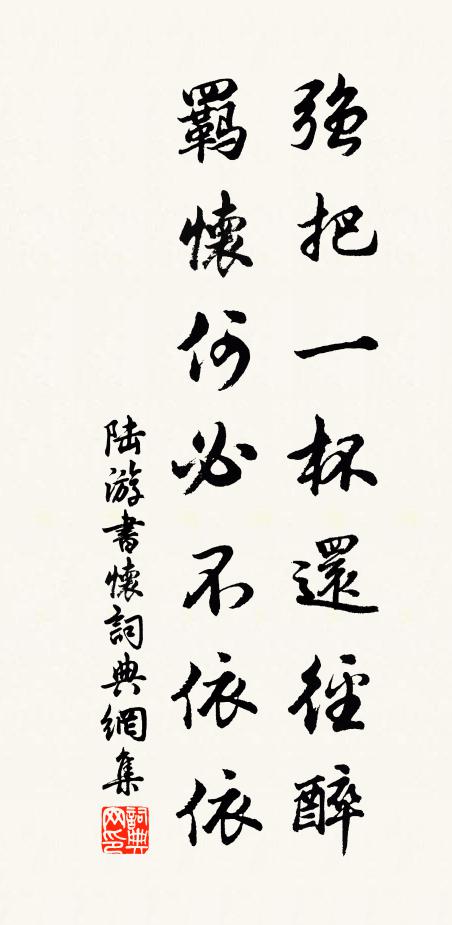 強把一杯還徑醉
羈懷何必不依依
陆游書懷詞典網集
詞典网印